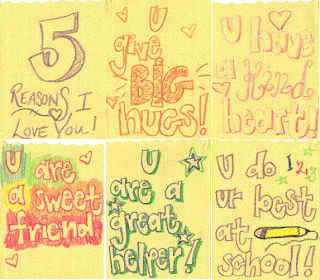 5
REASONS I
LOVE YOU!
U
give
BIG
hugs!
U have
a Kind
heart!
U are
a sweet
friend
U
are a
great
helper!
U do 123
ur best
at
school!